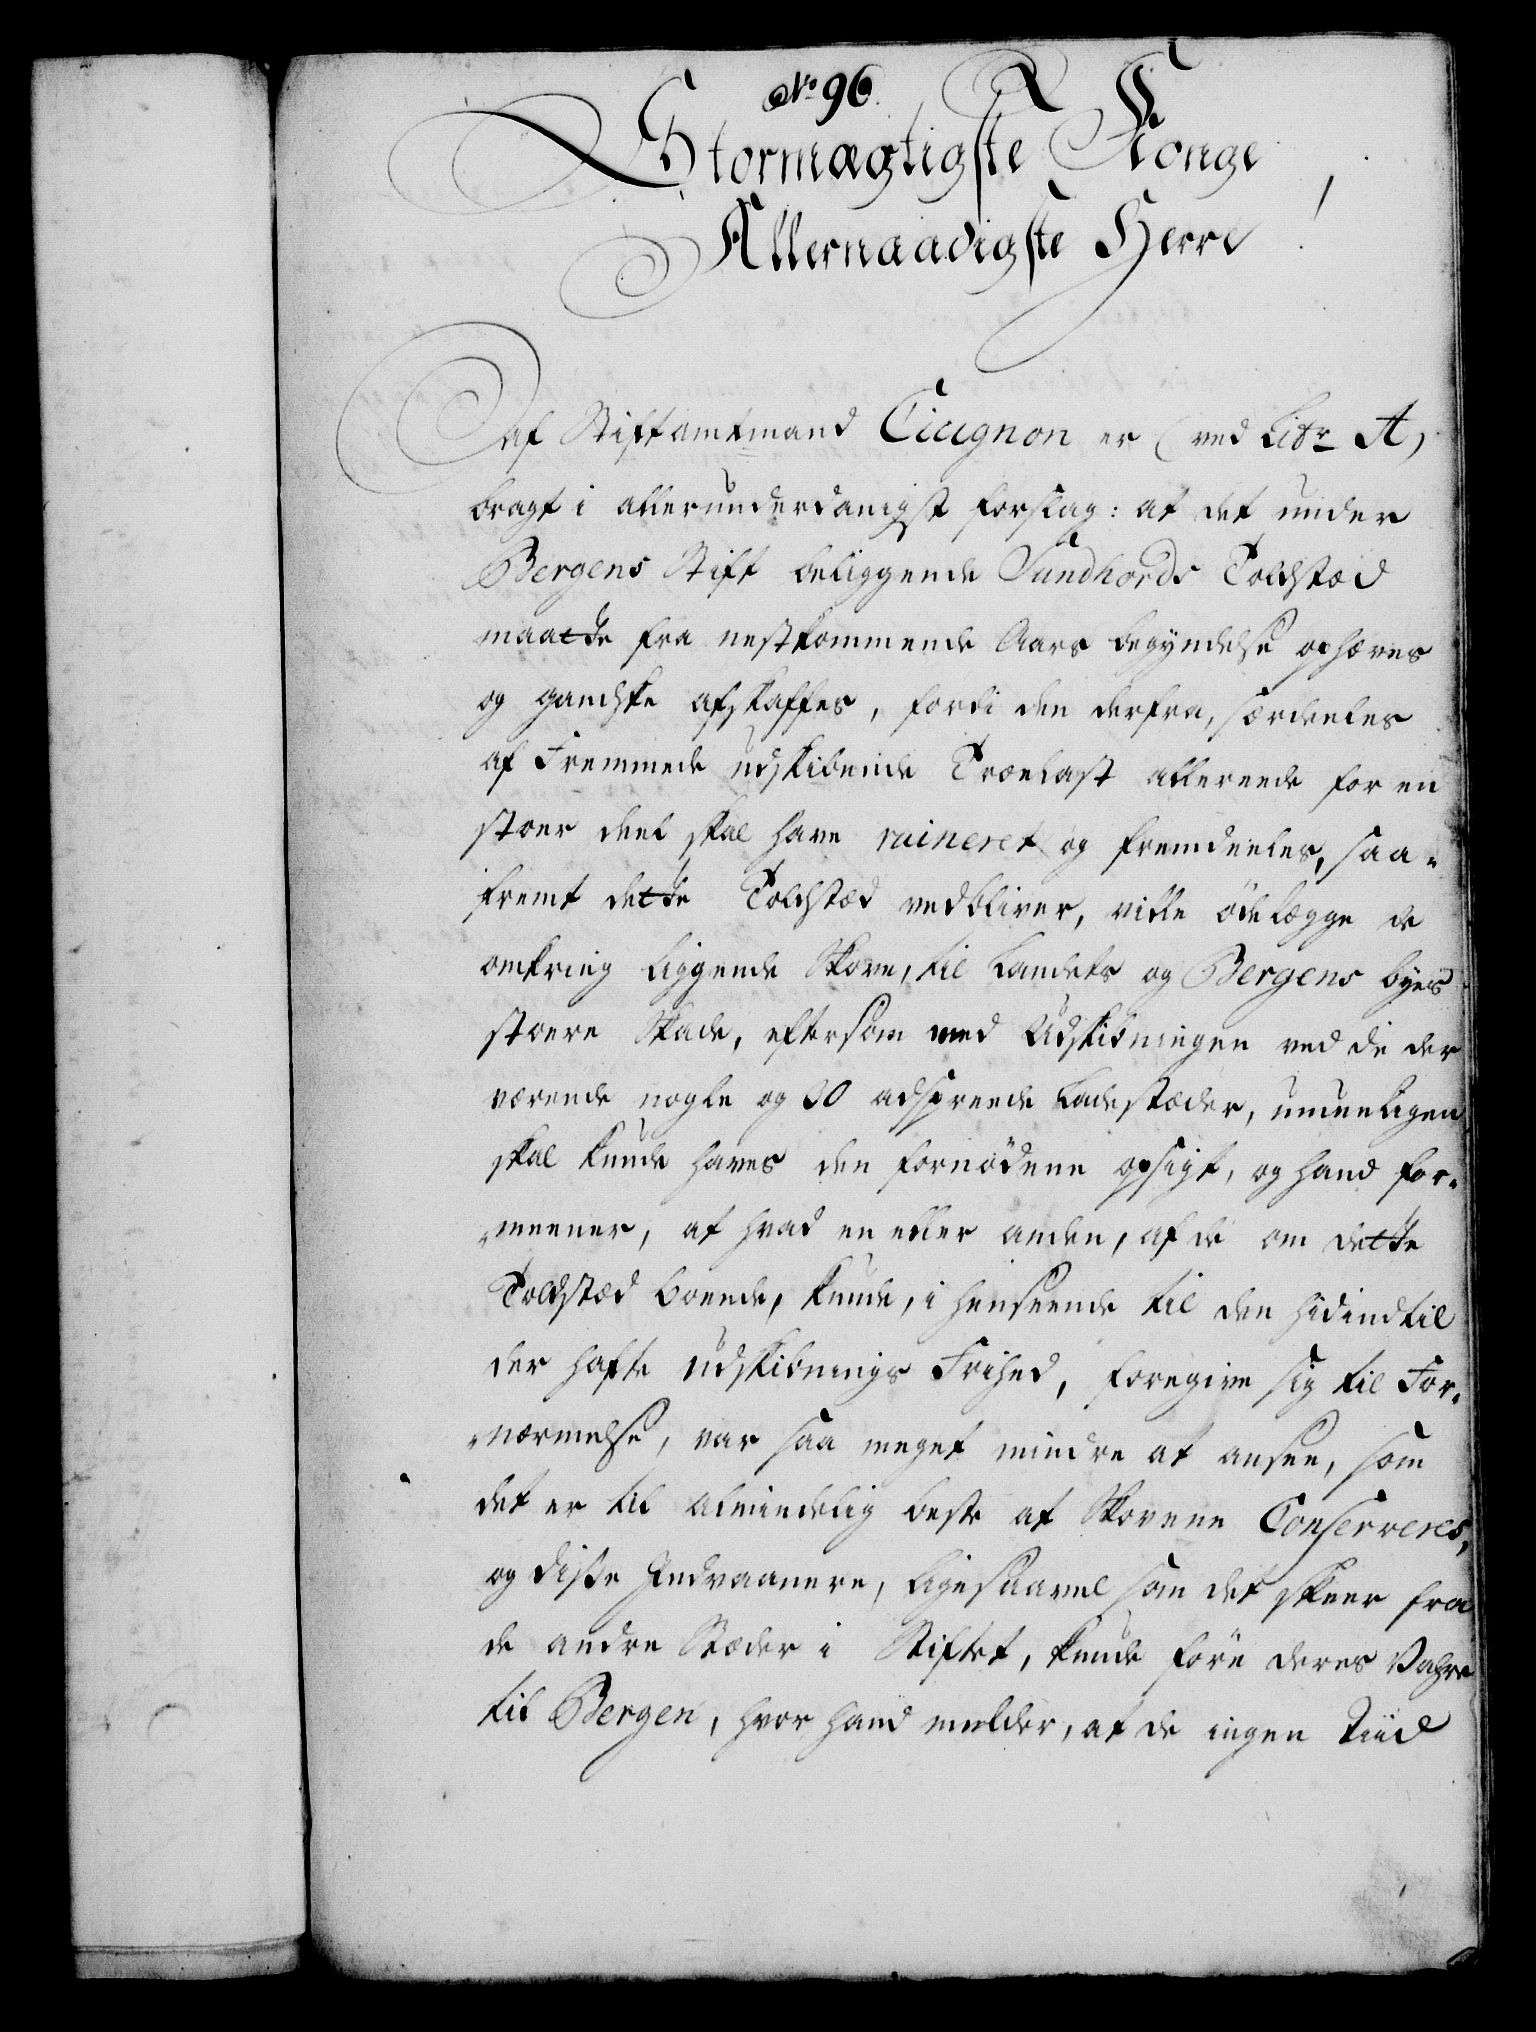 No 96.
Stormægtigste Konge
Allernaadigste Herre!
Af Stiftamtmand Cicignon er (ved Litr A)
bragt i allerunderdanigst forslag: at det under
Bergens Stift beliggende Sundhords Toldstæd
maatte fra nestkommende Aars begyndelse ophæves
og gandske afskaffes, fordi den derfra, særdeeles
af Fremmede udskibende Trælast allereede for en
stoer deel skal have ruineret og fremdeeles, saa-
fremt dette Toldstæd vedbliver, ville ödelægge de
omkring liggende Skove, til Landets og Bergens byes
stoere Skade, eftersom med Udskibningen ved de der
værende nogle og 30 adspreede Ladestæder, umueligen
skal kunde haves den fornödene opsigt, og hand for-
meener, at hvad en eller anden, af de om dette
Toldstæd boende, kunde, i henseende til den hidindtil
der hafte udskibnings Frihed, foregive sig til For-
nærmelse, var saa meget mindre at ansee, som
det er til almindelig beste at Skovene Conserveres,
og disse Indvaanere, ligesaavel som det skeer fra
de andre Stæder i Stiftet, kunde före deres Vahre
til Bergen, hvor hand melder, at de ingen Tiid